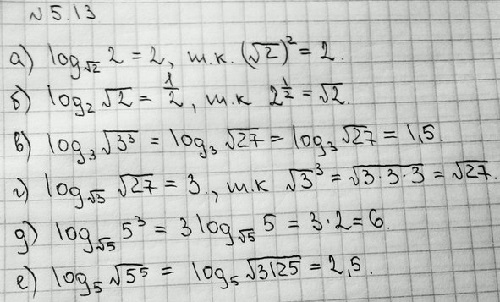 № 5.13
а) log_√2 2 = 2, т.к. (√2)² = 2.
б) log₂ √2 = 1/2, т.к 2^(1/2) = √2.
в) log₃ √3³ = log₃ √27 = log₃ √27 = 1,5.
г) log_√3 √27 = 3, т.к √3³ = √3·3·3 = √27.
д) log_√5 5³ = 3 log_√5 5 = 3·2 = 6
е) log₅ √5⁵ = log₅ √3125 = 2,5.